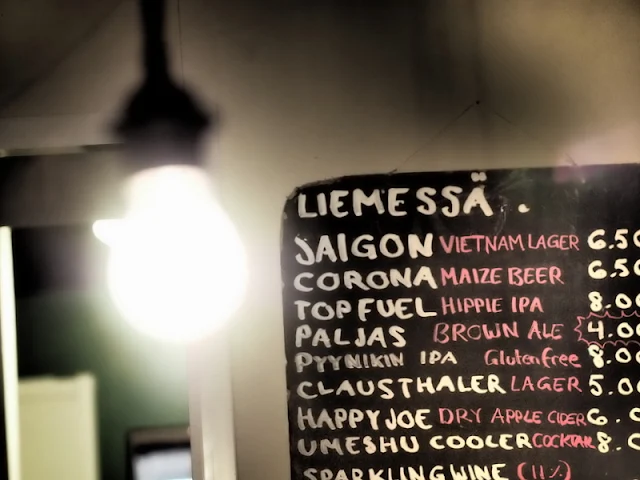 LIEMESSÄ.
SAIGON VIETNAM LAGER 6.50
CORONA MAIZE BEER 6.50
TOP FUEL HIPPIE IPA 8.00
PALJAS BROWN ALE 4.00
PYYNIKIN IPA Glutenfree 8.00
CLAUSTHALER LAGER 5.00
HAPPY JOE DRY APPLE CIDER 6.
UMESHU COOLER COCKTAIL 8.
SPARKLING WINE (11%)